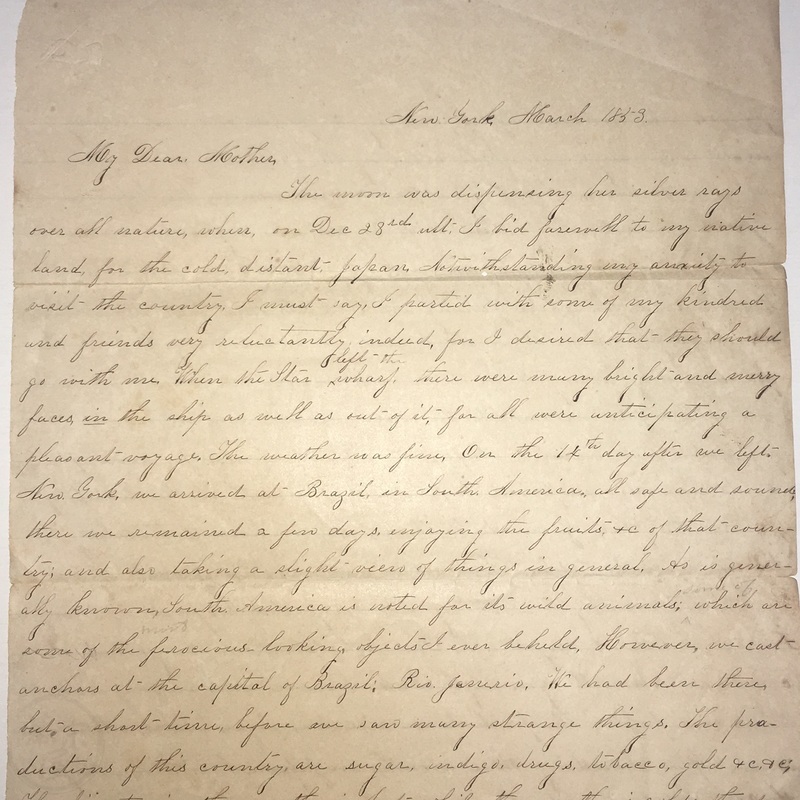 New York, March 1853.
My Dear Mother,
The moon was dispensing her silver rays
over all nature, when, on Dec 28rd ult. I bid farewell to my native
land, for the cold, distant, Japan. Notwithstanding my anxiety to
visit the country, I must say, I parted with some of my kindred
and friends very reluctantly, indeed, for I desired that they should
left the
go with me. When the Star wharf, there were many bright and merry
faces in the ship as well as out of it, for all were anticipating a
pleasant voyage. The weather was fine. On the 14th day after we left
New York, we arrived at Brazil, in South America, all safe and sound,
there we remained a few days, enjoying the fruits, &c of that coun-
try; and also taking a slight view of things in general. As is gener-
ally known, South America is noted for its wild animals; which are
some of the ferocious looking objects I ever beheld. However, we cast
anchors at the capital of Brazil; Rio Janerio. We had been there
but a short time, before we saw many strange things. The pro-
ductions of this country, are sugar, indigo, drugs, tobacco, gold &c, &c;